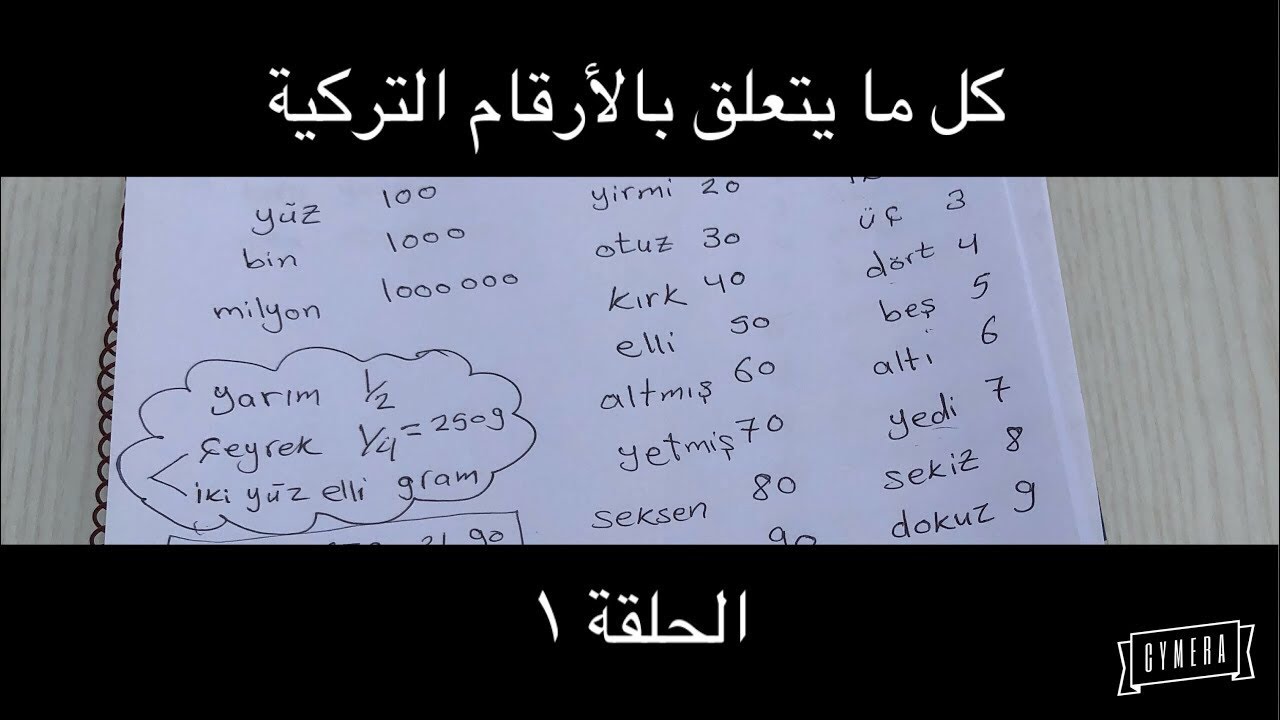 كل ما يتعلق بالأرقام التركية
yüz 100
bin 1000
milyon 1000 000
yarım 1/2
çeyrek 1/4 = 250g
iki yüz elli gram
yirmi 20
otuz 30
kırk 40
elli 50
altmış 60
yetmiş 70
seksen 80
90
üç 3
dört 4
beş 5
altı 6
yedi 7
sekiz 8
dokuz 9
الحلقة ١
CYMERA